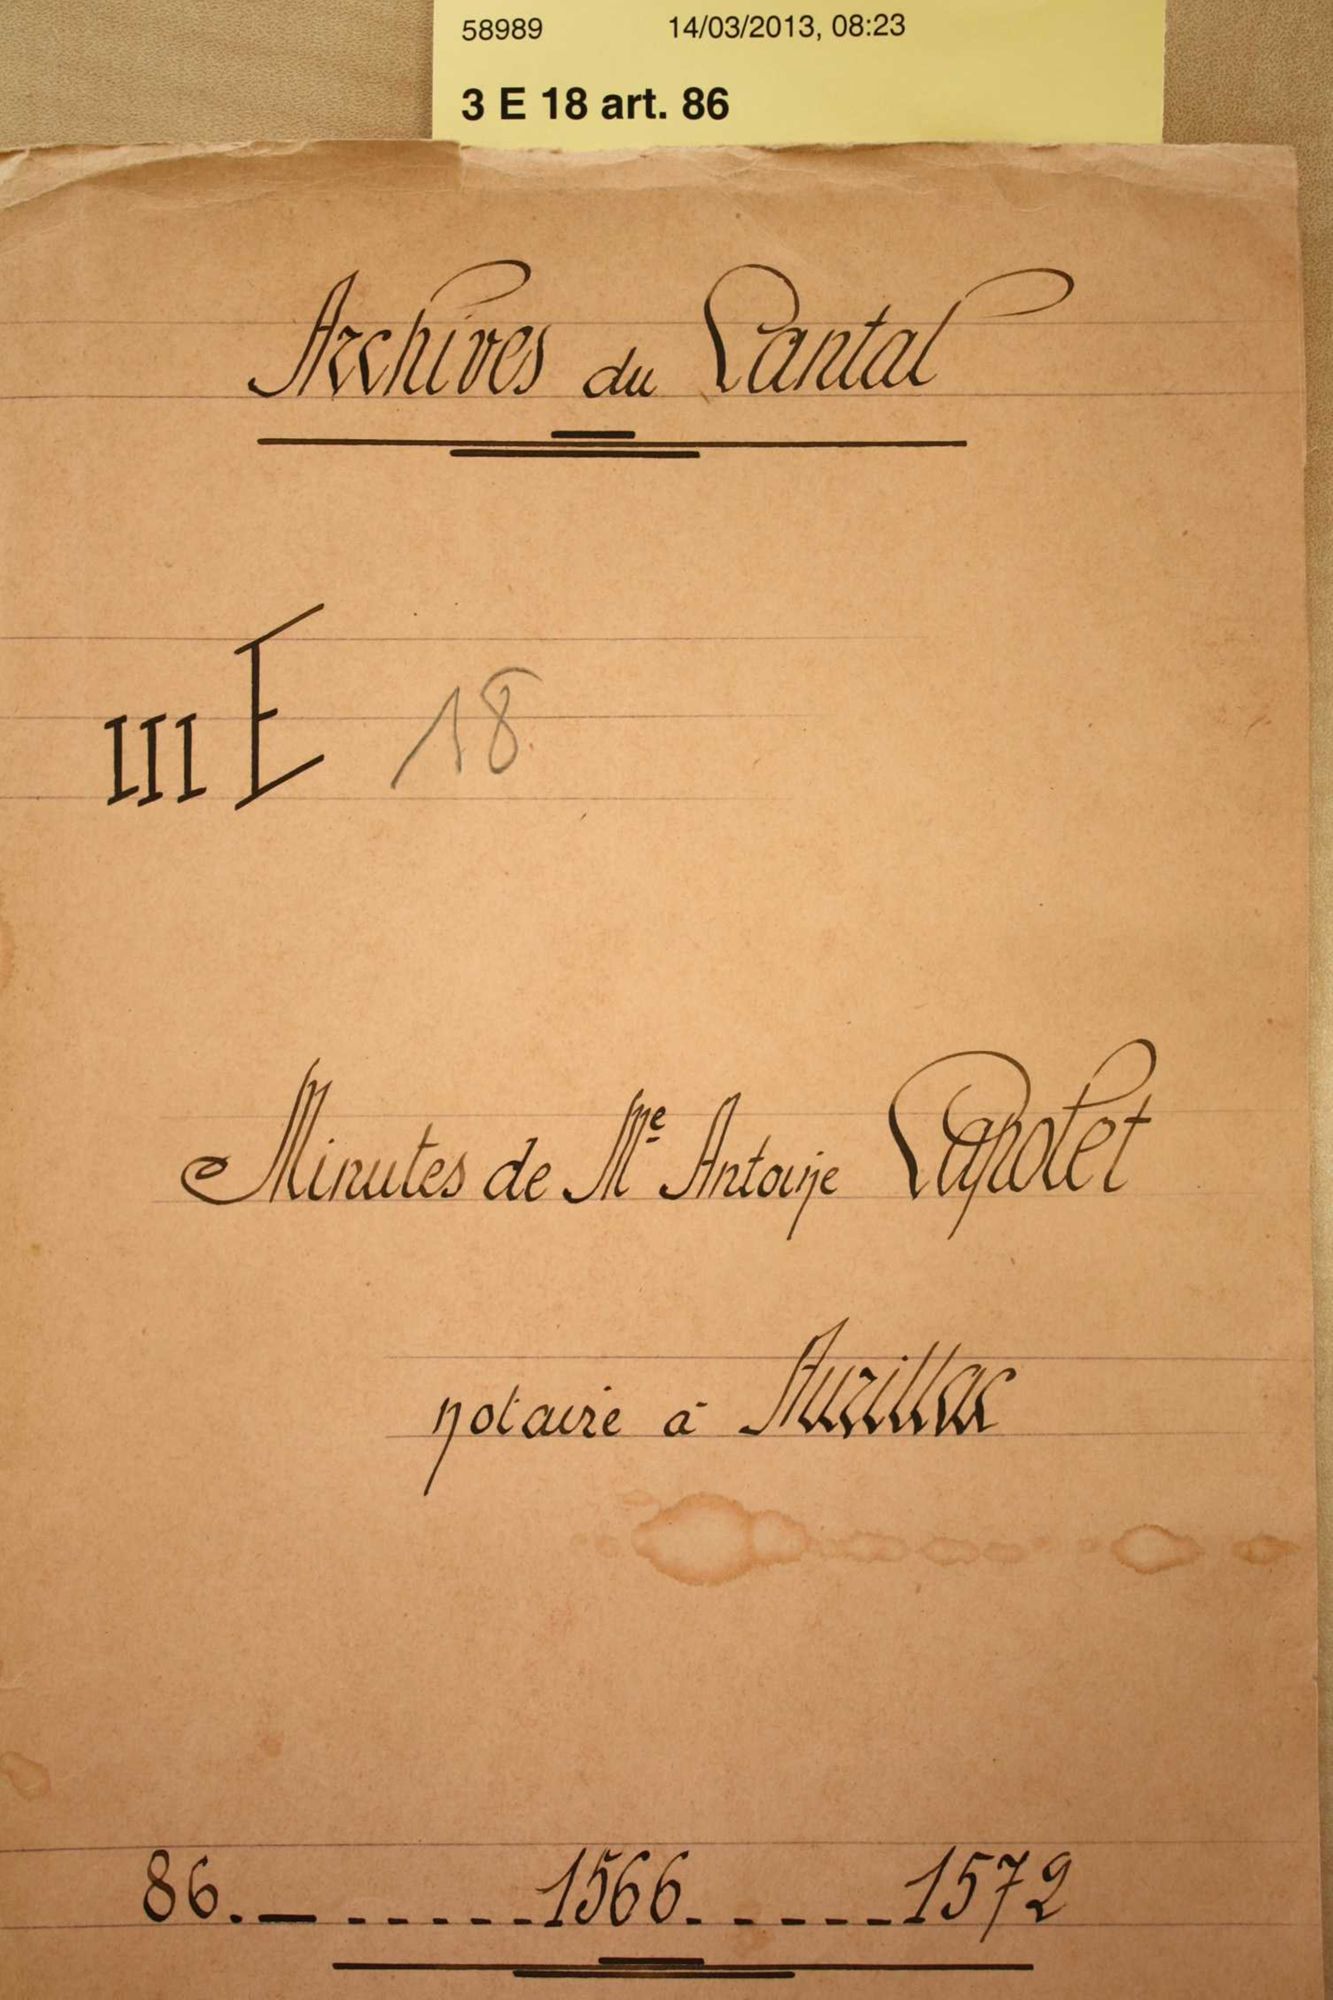 58989 14/03/2013, 08:23
3 E 18 art. 86
Archives du Cantal
III E 18
Minutes de Me Antoine Capotet
notaire à Aurillac
86. — ......1566......1572